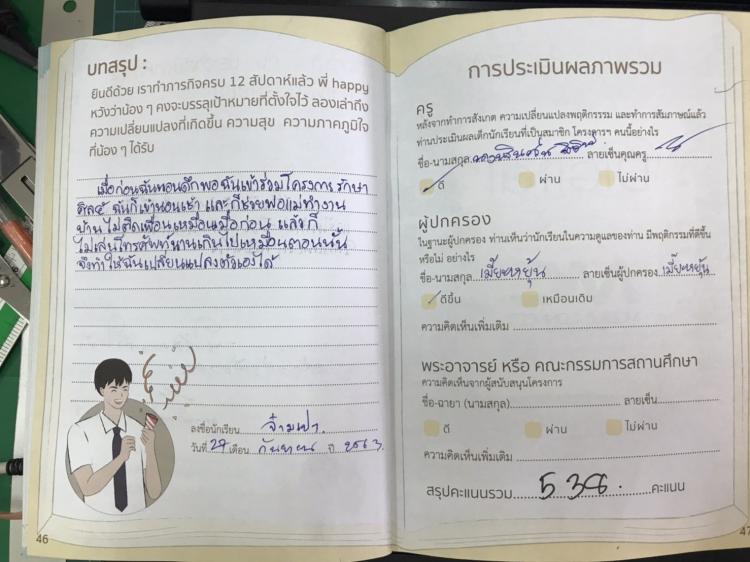 บทสรุป :
ยินดีด้วย เราทำภารกิจครบ 12 สัปดาห์แล้ว พี่ happy
หวังว่าน้อง ๆ คงจะบรรลุเป้าหมายที่ตั้งใจไว้ ลองเล่าถึง
ความเปลี่ยนแปลงที่เกิดขึ้น ความสุข ความภาคภูมิใจ
ที่น้อง ๆ ได้รับ
เมื่อก่อนฉันนอนดึกพอฉันเข้าร่วมโครงการ รักษา
ศีล๕ ฉันก็เข้านอนเช้า และก็ช่วยพ่อแม่ทำงาน
บ้าน ไม่ติดเพื่อนเหมือนเมื่อก่อน แล้วก็
ไม่เล่นโทรศัพท์นานเกินไปเหมือนตอนนั้น
จึงทำให้ฉันเปลี่ยนแปลงตัวเองได้
ลงชื่อนักเรียน
วันที่ 27 เดือน กันยายน ปี 2563
46
การประเมินผลภาพรวม
ครู
หลังจากทำการสังเกต ความเปลี่ยนแปลงพฤติกรรรม และทำการสัมภาษณ์แล้ว
ท่านประเมินผลเด็กนักเรียนที่เป็นสมาชิก โครงการฯ คนนี้อย่างไร
ชื่อ-นามสกุล ลายเซ็นคุณครู
ดี ผ่าน ไม่ผ่าน
ผู้ปกครอง
ในฐานะผู้ปกครอง ท่านเห็นว่านักเรียนในความดูแลของท่าน มีพฤติกรรมที่ดีขึ้น
หรือไม่ อย่างไร
ชื่อ-นามสกุล เมี๊ยะหยุ้น ลายเซ็นผู้ปกครอง เมี๊ยะหยุ้น
ดีขึ้น เหมือนเดิม
ความคิดเห็นเพิ่มเติม
พระอาจารย์ หรือ คณะกรรมการสถานศึกษา
ความคิดเห็นจากผู้สนับสนุนโครงการ
ชื่อ-ฉายา (นามสกุล) ลายเซ็น
ดี ผ่าน ไม่ผ่าน
ความคิดเห็นเพิ่มเติม
สรุปคะแนนรวม 538 คะแนน
47